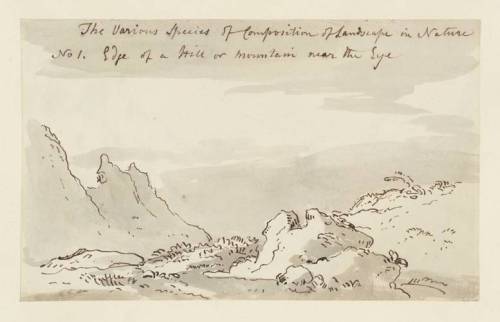 The Various Species of Composition of Landscape in Nature
No 1. Edge of a Hill or mountain near the Eye